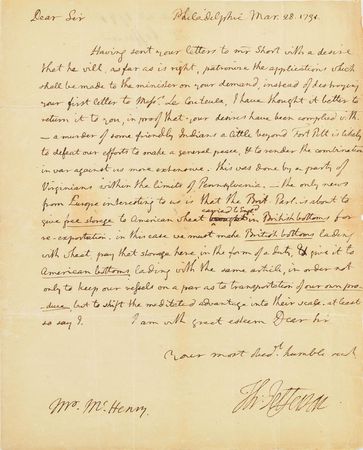 Dear Sir Philadelphia Mar. 28. 1791.
Having sent your letters to mr Short with a desire
that he will, as far as is right, patronize the applications which
shall be made to the minister on your demand, instead of destroying
your first letter to Messrs. Le Couteulx, I have thought it better to
return it to you, in proof that your desires have been complied with.
– a murder of some friendly Indians a little beyond Fort Pitt is likely
to defeat our efforts to make a general peace, & to render the combination
in war against us more extensive. this was done by a party of
Virginians within the limits of Pennsylvania. – the only news
from Europe interesting to us is that the Brit. Parl. is about to
give free storage to American wheat carried to Gr. Br. in British bottoms for
re-exportation. in this case we must make British bottoms lading
with wheat, pay that storage here in the form of a duty, & give it to
American bottoms lading with the same article, in order not
only to keep our vessels on a par as to transportation of our own pro-
duce but to shift the meditated advantage into their scale. at least
so say I. I am with great esteem Dear Sir
your most obedt. humble servt
Th: Jefferson
Mr. Mc.Henry.